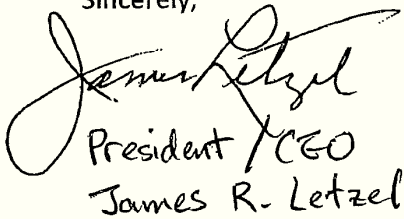 Sincerely,
James Letzel
President / CEO
James R. Letzel